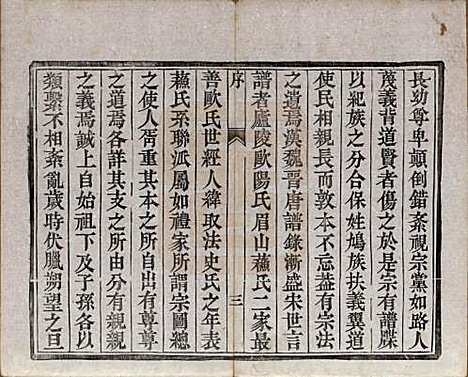 長幼尊卑顛倒錯紊視宗黨如路人
蔑義背道賢者傷之於是宗有譜牒
以紀族之分合保姓鳩族扶義翼道
使民相親長而敦本不忘益有宗法
之遺焉漢魏晉唐譜錄漸盛宋世言
譜者廬陵歐陽氏眉山蘓氏二家最
序
三
善歐氏世經人緯取法史氏之年表
蘓氏系聯派屬如禮家所謂宗圖總
之使人胥重其本之所自出有尊尊
之道焉各詳其支之所由分有親親
之義焉誠上自始祖下及子孫各以
類繫不相紊亂歲時伏臘朔望之旦